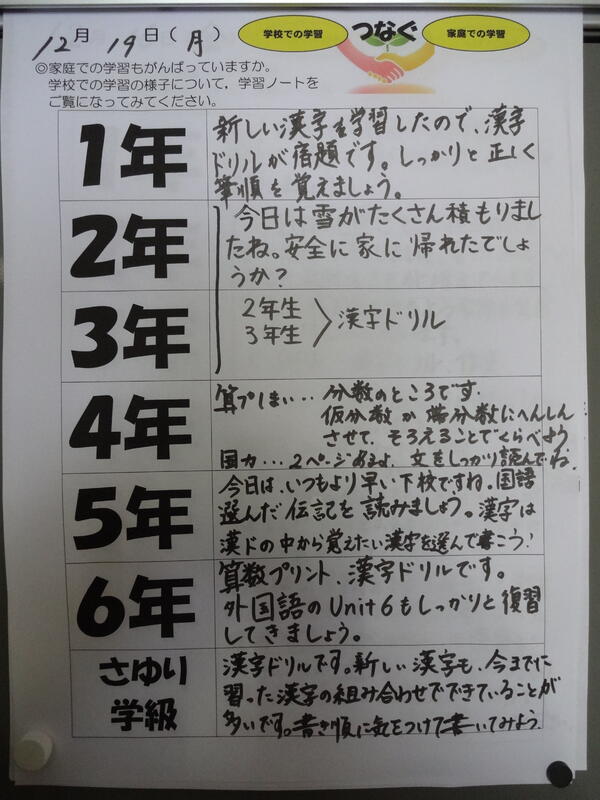 12月19日(月)
学校での学習
つなぐ
家庭での学習
◎家庭での学習もがんばっていますか。
学校での学習の様子について，学習ノートを
ご覧になってみてください。
1年
新しい漢字を学習したので、漢字
ドリルが宿題です。しっかりと正しく
筆順を覚えましょう。
2年
今日は雪がたくさん積もりまし
たね。安全に家に帰れたでしょ
うか？
3年
2年生
3年生
漢字ドリル
4年
算プしまい… 分数のところです.
仮分数か帯分数にへんしん
させて、そろえることでくらべよう
国力…2ページあるよ、文をしっかり読んでね.
5年
今日は、いつもより早い下校ですね。国語
選んだ伝記を読みましょう。漢字は
漢ドの中から覚えたい漢字を選んで書こう！
6年
算数プリント、漢字ドリルです。
外国語のUnit6もしっかりと復習
してきましょう。
さゆり
学級
漢字ドリルです。新しい漢字も、今までに
習った漢字の組み合わせでできていることが
多いです。書き順に気をつけて書いてみよう.